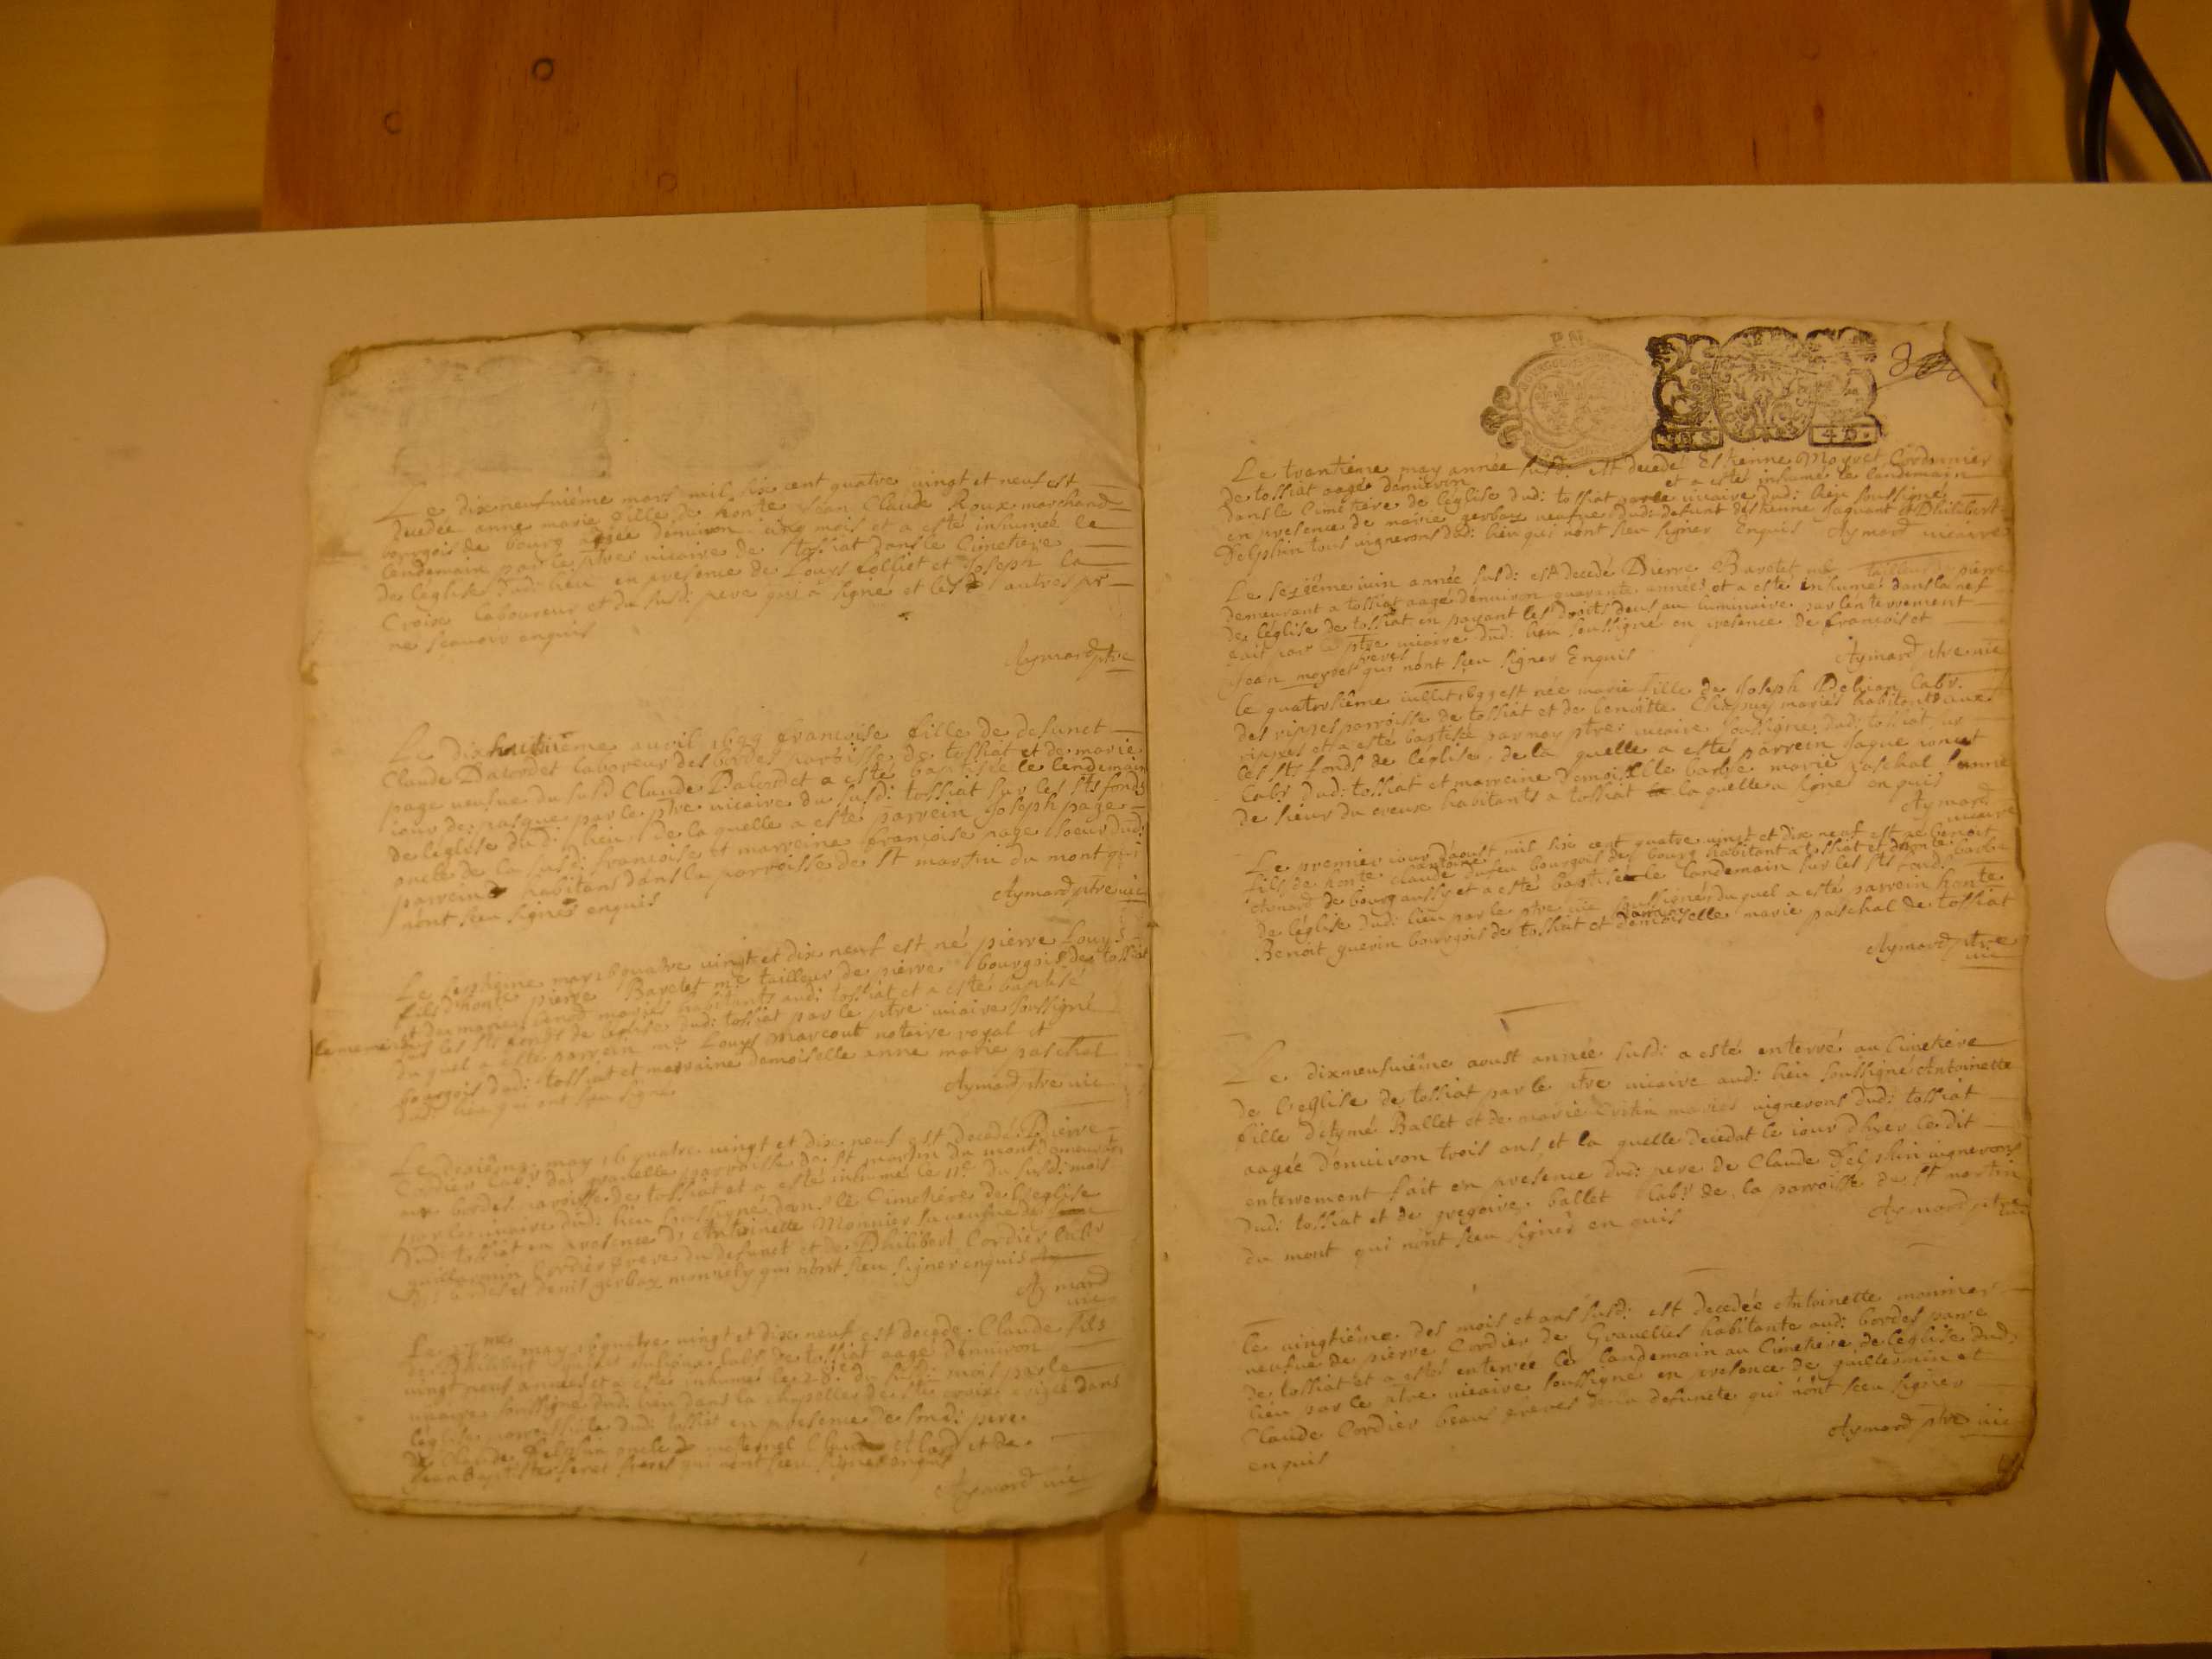 Le dixneufuiéme mars mil six cent quatre uingt et neuf est
decedée anne marie fille de honte Jean Claude Roux marchand
bourgois de bourg agée denuiron cinq mois et a esté inhumée le
lendemain par le ptre uicaire de tossiat dans le Cimetiere
de léglise dud: lieu en presence de Louys colliet et Joseph la
Croix laboureur et du susd: pere qui a signé et les autres pr
ne scauoir enquis
Aymard ptre
Le dixhuitiéme auril 1699 francoise fille de defunct
Claude Dacordet laboreur des bordes paroisse de tossiat et de marie
page ueufue du susd Claude Dacordet a esté baptisée le lendemain
iour de pasque par le ptre uicaire du susd: tossiat sur les sts fonds
de léglise dud: lieu, de la quelle a esté parrein Joseph page
oncle de la susd: francoise et marreine francoise page soeur dud:
parrein habitans dans la parroisse de st martin du mont qui
nont sceu signer enquis
Aymard ptre uic
Le may 16 quatre uingt et dix neuf est né pierre Louys
fils dhonte pierre Bavetet me tailleur de pierre bourgois de tossiat
mariés habitants aud: tossiat et a esté baptisé
sur les sts fonds de léglise dud: tossiat par le ptre uicaire soussigné
du quel a esté parrein me Louys marcout notaire royal et
bourgois dud: tossiat et marraine demoiselle anne marie paschal
dud: lieu qui ont sceu signer
Aymard ptre uic
Le may 16 quatre uingt et dix neuf est decedé Pierre
Cordier labr des grauelles parroisse de st martin du mont demeurant
aux bordes paroisse de tossiat et a esté inhumé le 11e du susd: mois
par le uicaire dud: lieu soussigné dans le Cimetiere de leglise
dud: tossiat en presence d: Antoinette Monnier sa ueufue de
guillermin Cordier frere du defunct et de Philibert Cordier labr
des bordes et denis gerbaz qui nont sceu signer enquis
Aymard
uic
Le 27me may 16 quatre uingt et dix neuf est decede Claude fils
de Philibert labr de tossiat aagé denuiron
uingt neuf années et a esté inhumé le 28e du susd: mois par le
uicaire soussigné dud: lieu dans la chapelle de ste croix erigée dans
léglise parroissiale dud: tossiat en presence de sond: pere
de Claude Delphin oncle maternel et de
Jean Baptiste freres qui nont sceu signer enquis
Aymard uic
Le trantiéme may année susd: est decedé Estienne Moyret Cordonnier
de tossiat aagé denuiron et a esté inhumé le landemain
dans le Cimetiere de léglise dud: tossiat par le uicaire dud: lieu soussigné
en presence de marie gerbaz ueufue dud: defunct destienne Jaquant et Philibert
Delphin tous uignerons dud: lieu qui nont sceu signer Enquis Aymard uicaire
Le seziéme iuin année susd: est decedé Pierre Bavetet me tailleur de pierre
demeurant a tossiat aagé denuiron quarante années et a esté inhumé dans la nef
de léglise de tossiat en payant les droits deus au luminaire par lenterrement
fait par le ptre uicaire dud: lieu soussigné en presence de francois et
Jean moyret freres qui nont sceu signer Enquis Aymard ptre uic
le quatrhiéme iuillet 1699 est née marie fille de Joseph Debian labr.
des rippes parroisse de tossiat et de benoitte Chapuy mariés habitants aux
rippes et a esté baptisée par moy ptre uicaire soussigné dud: tossiat sur
les sts fonds de léglise, de la quelle a esté parrein Jaque
labr dud: tossiat et marreine demoiselle barbe marie paschal femme
de sieur du creux habitants a tossiat la quelle a signé enquis
Aymard
uicaire
Le premier iour daoust mil six cent quatre uingt et dix neuf est né benoit
fils de honte claude antoine dufeu bourgois de bourg habitant a tossiat et dhonte barbe
Aymard de bourg aussy et a esté baptisé le landemain sur les sts fonds
de léglise dud: lieu par le ptre uic soussigné duquel a esté parrein honte
Benoit guerin bourgois de tossiat et demoiselle marie paschal de tossiat
Aymard ptre
uic
Le dixneufuiéme aoust année susd: a esté enterré au Cimetiere
de l'eglise de tossiat par le ptre uicaire aud: lieu soussigné Antoinette
fille d'Aymé Ballet et de marie Critin mariés uignerons dud: tossiat
aagée d'enuiron trois ans, et la quelle decedat le iour dhyer ledit
enterrement fait en presence dud: pere de Claude Delphin uigneron
dud: tossiat et de gregoire ballet labr de la parroisse de st martin
du mont qui nont sceu signer enquis
Aymard ptre uic
le uingtiéme des mois et ans susd: est decedée Antoinette monnier
ueufue de pierre Cordier de Grauelles habitante aud: bordes parre
de tossiat et a esté enterrée le landemain au Cimetiere de léglise dud:
lieu par le ptre uicaire soussigné en presence de guillermin et
Claude Cordier beaux freres de la defuncte qui nont sceu signer
enquis
Aymard ptre uic